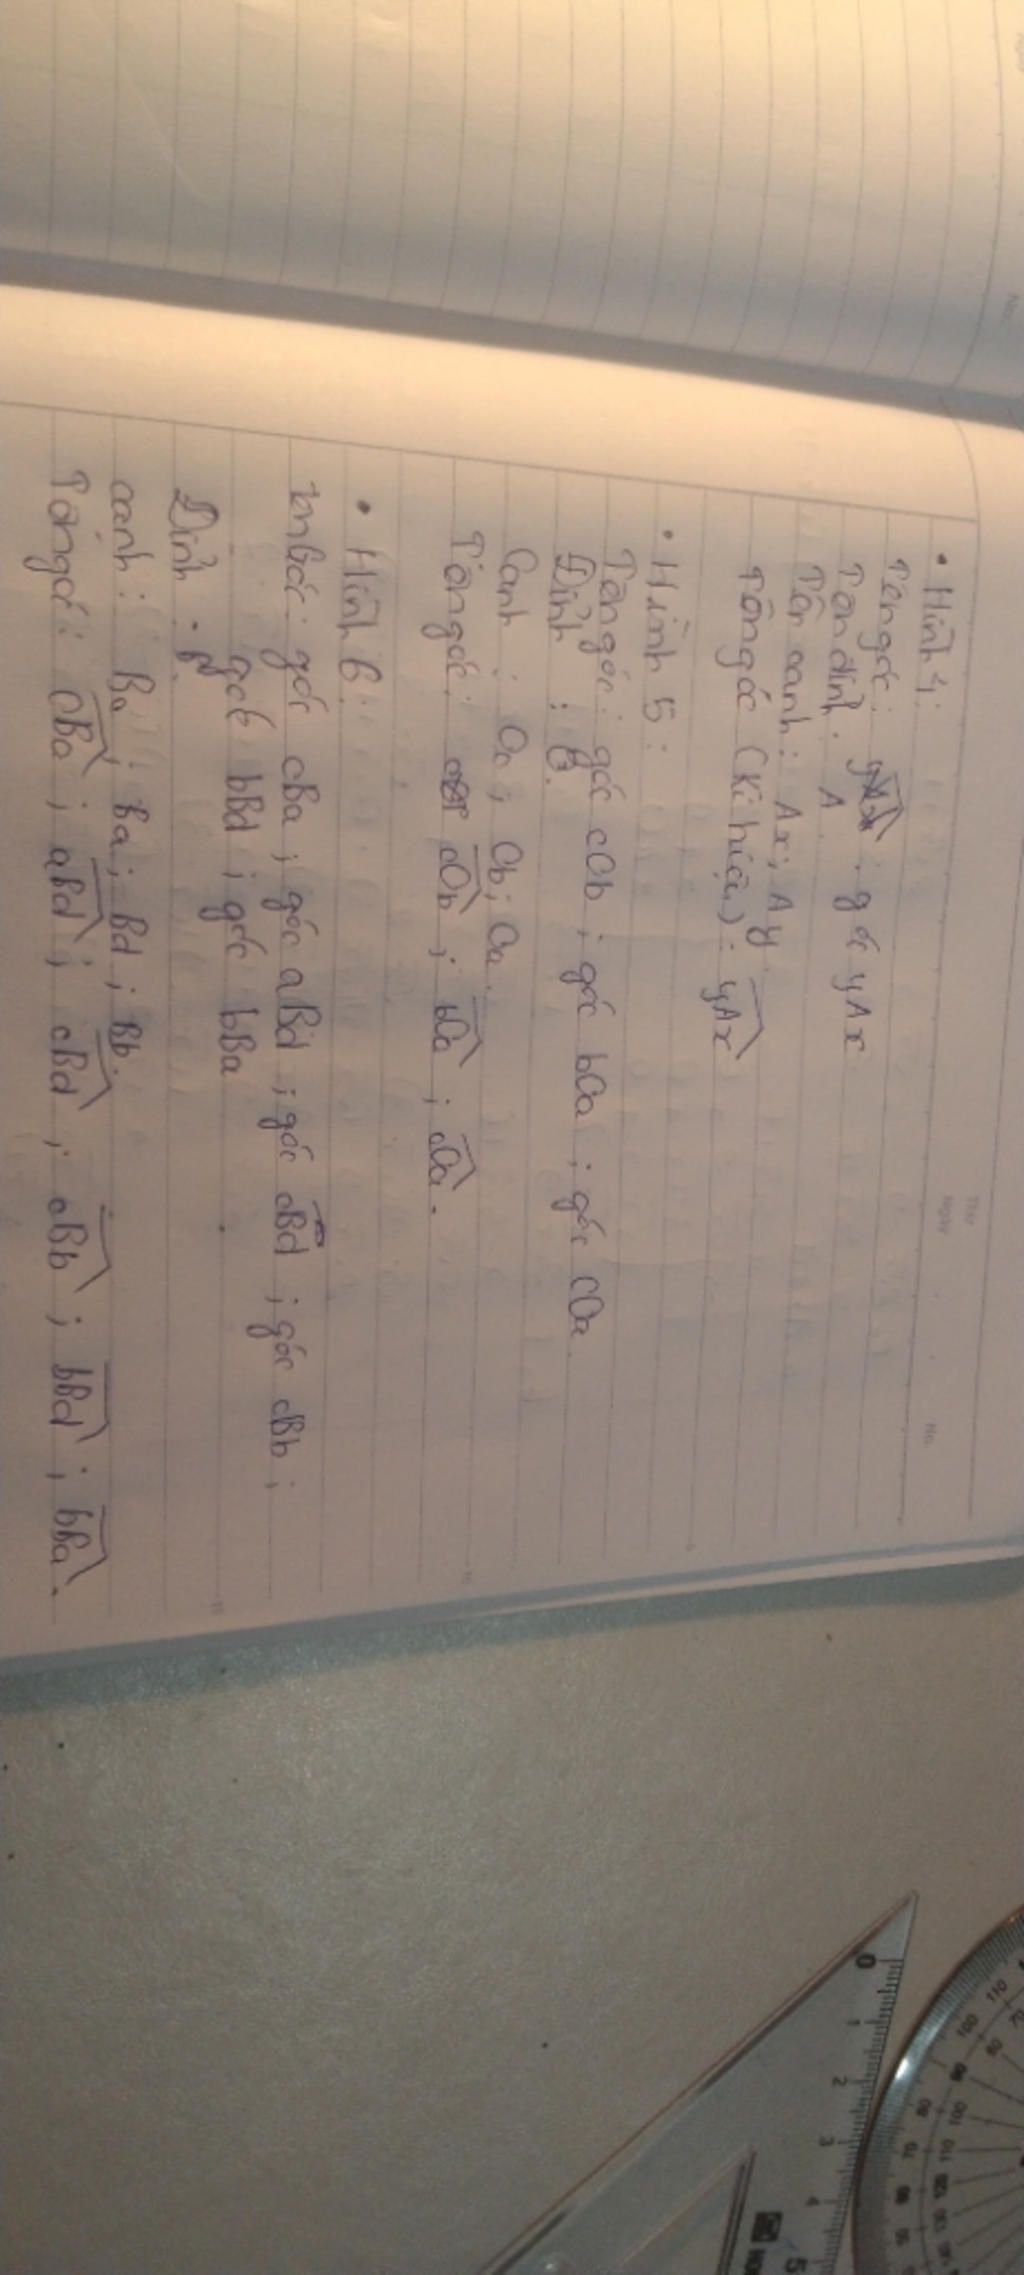 Thứ
Ngày
No.
• Hình 4:
Tên góc: góc yAx
Tên đỉnh: A
Tên cạnh: Ax; Ay
Tên góc (Kí hiệu): yAx
• Hình 5:
Tên góc: góc cOb; góc bOa; góc cOa.
Đỉnh:
Cạnh: Oc; Ob; Oa.
Tên góc: cOb; bOa; cOa.
• Hình 6:
Tên Góc: góc cBa; góc aBd; góc cBd; góc cBb;
góc bBd; góc bBa
Đỉnh: B.
cạnh: Ba; Bd; Bb.
Tên góc: cBa; aBd; cBd; cBb; bBd; bBa.
0 1 2 3 4 5